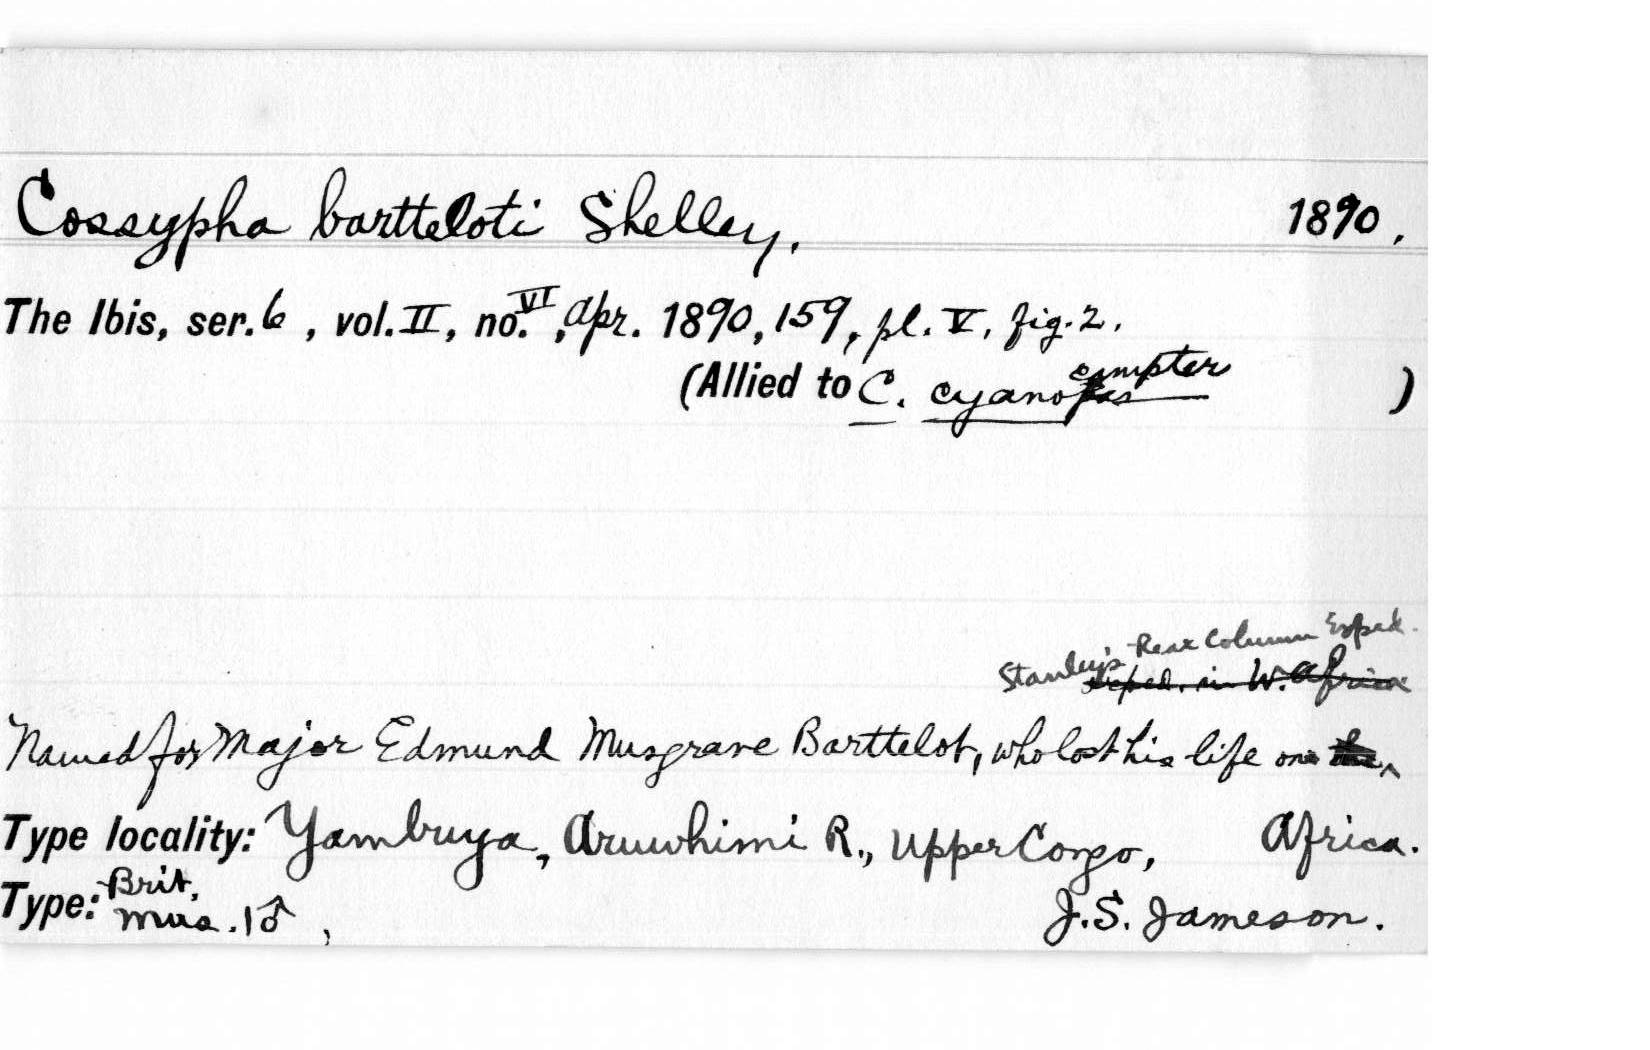 Cossypha bartteloti Shelley, 1890.
The Ibis, ser. 6, vol. II, no. VI, Apr. 1890, 159, pl. V, fig. 2.
(Allied to C. cyanocampter)
Stanley's Rear Column Exped.
exped. in W. Africa
Named for Major Edmund Musgrave Barttelot, who lost his life on the ^
Type locality: Yambuya, Aruwhimi R., Upper Congo, Africa.
Type: Brit. Mus. 1♂, J.S. Jameson.